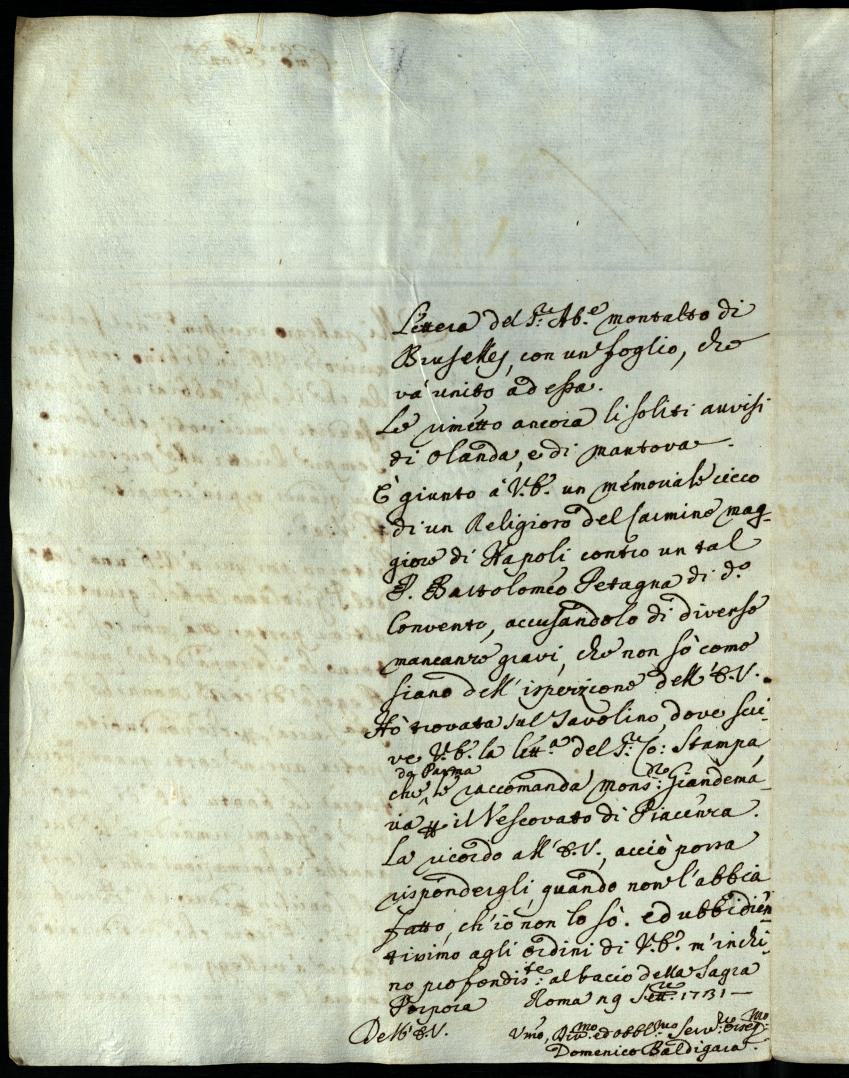 Lettera del S.r Ab.e Montalto di
Bruselles, con un foglio, che
và unito ad essa.
Le rimetto ancora li soliti avvisi
di Olanda, e di Mantova.
È giunto à V.E. un memoriale cieco
di un Religioso del Carmine mag-
giore di Napoli contro un tal
P. Bartolomeo Petagna di d.o
Convento, accusandolo di diverse
mancanze gravi, che non sò come
siano dell'ispezione dell'E.V.
Hò trovata sul Tavolino, dove scri-
ve V.E. la lett.a del S.r Co: Stampa,
da Parma
che le raccomanda Mons:re Giandema-
ria p il Vescovato di Piacenza.
La ricordo all'E.V., acciò possa
rispondergli, quando non l'abbia
fatto, ch'io non lo sò. ed ubbidien
tissimo agli ordini di V.E. m'inchi-
no profondis.te: al bacio della Sagra
Porpora Roma 9 Sett.re 1731 —
Dell'E.V. Vmo, Div.mo ed obbl.mo Serv.re
Domenico Baldigara.